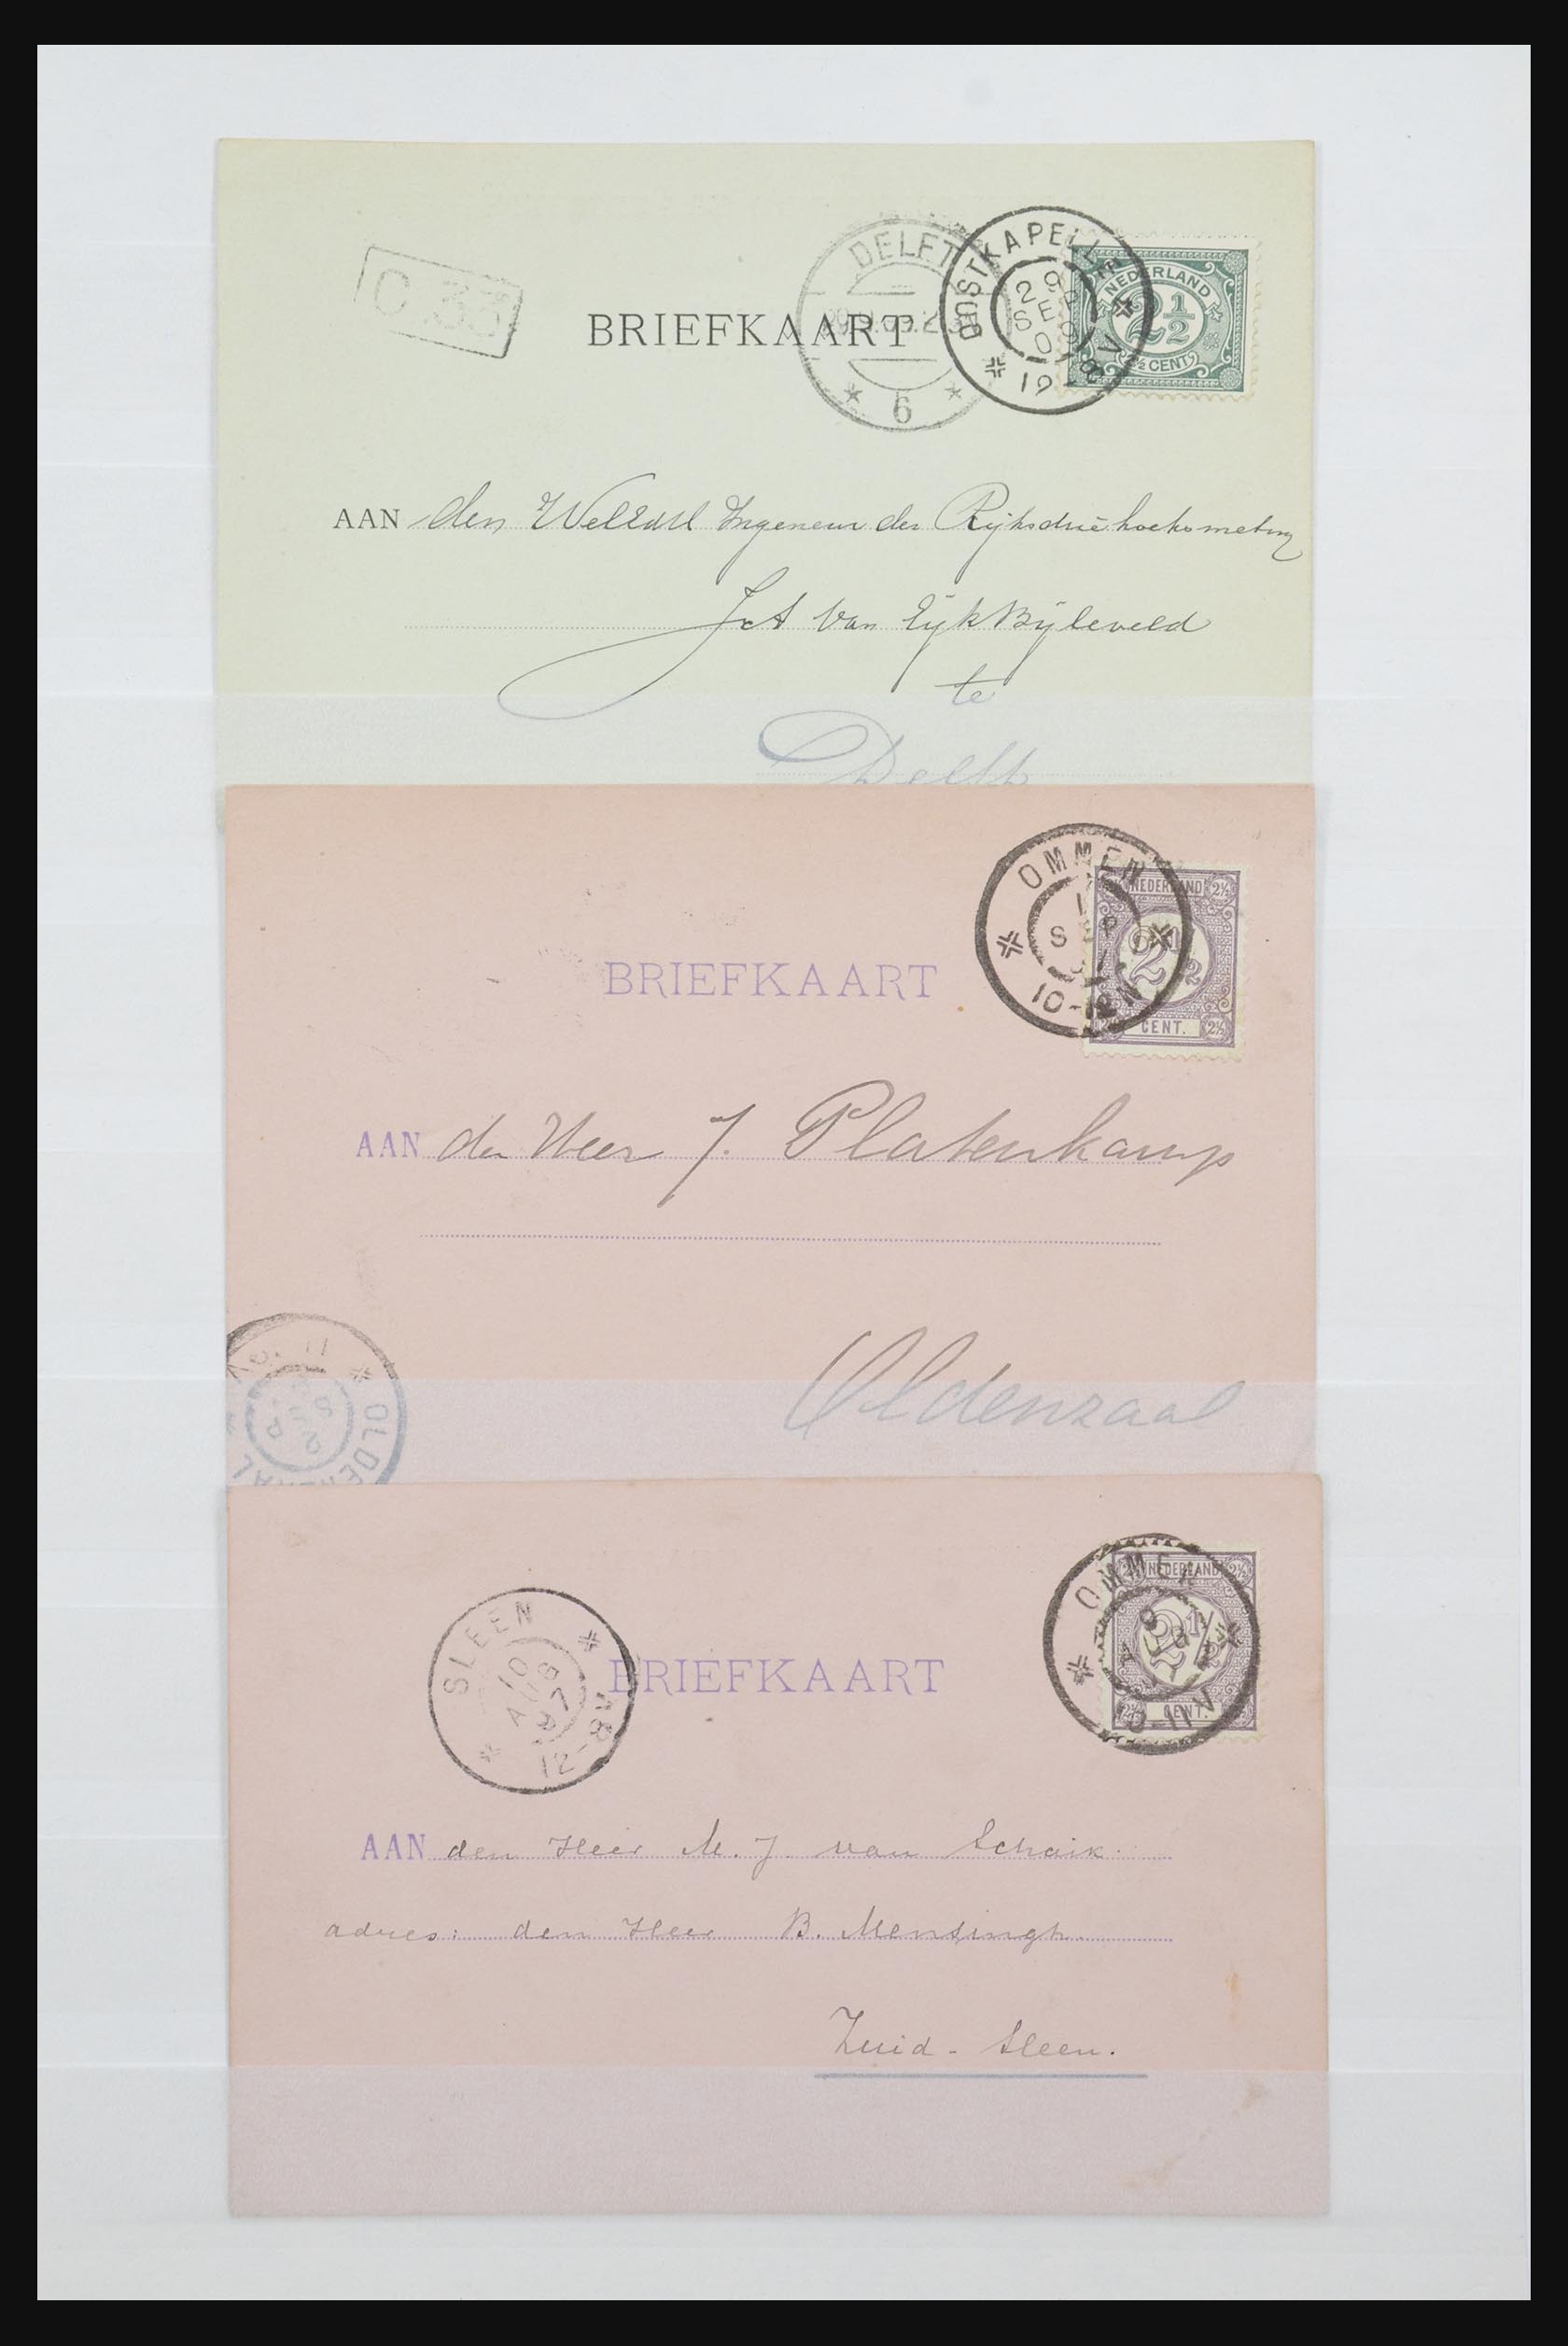 C 33
DELFT
6
OOSTKAPELLE
29 SEP 09
NEDERLAND
2½
2½ CENT
BRIEFKAART
AAN den WelEdl Ingeneur der Rijksdriehoeksmeting
van Eijk Bijleveld
te
Delft
OMMEN
1 SEP
10-12N
NEDERLAND 2½
2½
CENT. 2½
BRIEFKAART
AAN den Heer J. Platenkamp
Oldenzaal
OLDENZAAL
2 SEP
OMMEN
9 AUG
10-11V
NEDERLAND 2½
2½
2½ CENT.
SLEEN
10 AUG 97
12-8V
BRIEFKAART
AAN den Heer M. J. van Schaik.
adres: den Heer B. Mensingh.
Zuid-Sleen.